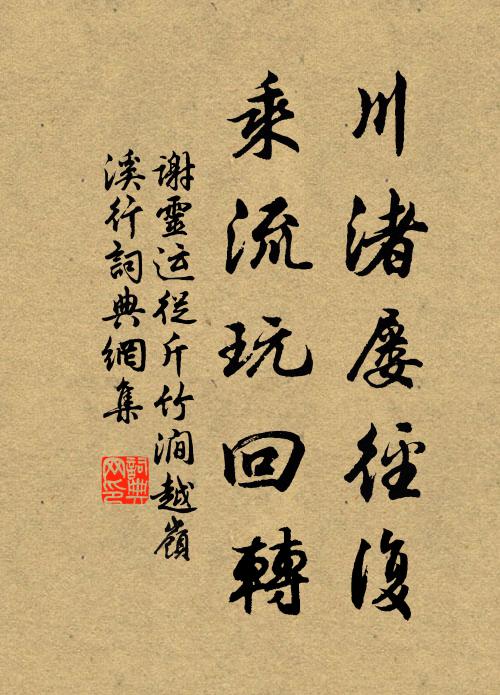 川渚屡徑復
乘流玩回轉
謝靈运從斤竹澗越嶺
溪行詞典網集
詞典
网印